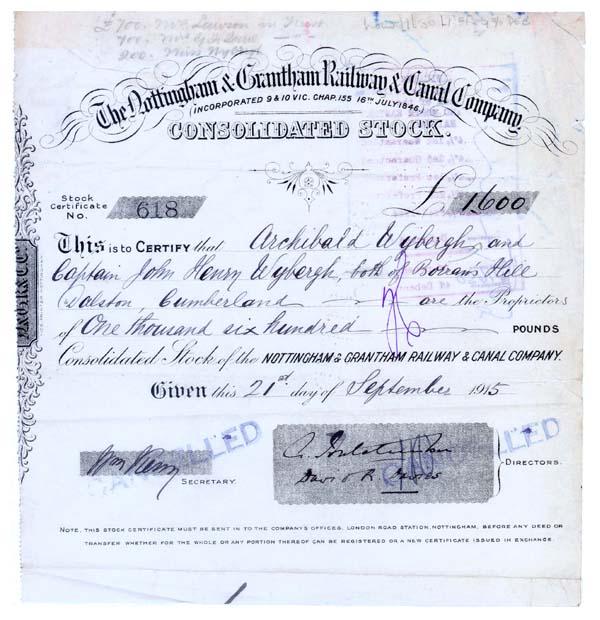 £700. Mrs Lawson in
700. Mrs
200. Miss
The Nottingham & Grantham Railway & Canal Company.
(INCORPORATED 9 & 10 VIC. CHAP. 155 16TH JULY 1846.)
CONSOLIDATED STOCK.
Stock
Certificate
No. 618
£ 1,600
This is to CERTIFY that Archibald Wybergh, and
Captain John Henry Wybergh, both of Borran's Hill
Dalston, Cumberland are the Proprietors
of One thousand six hundred POUNDS
Consolidated Stock of the NOTTINGHAM & GRANTHAM RAILWAY & CANAL COMPANY.
Given this 21st day of September 1915
CANCELLED
CANCELLED
SECRETARY.
DIRECTORS.
NOTE, THIS STOCK CERTIFICATE MUST BE SENT IN TO THE COMPANY'S OFFICES, LONDON ROAD STATION, NOTTINGHAM, BEFORE ANY DEED OR
TRANSFER WHETHER FOR THE WHOLE OR ANY PORTION THEREOF CAN BE REGISTERED OR A NEW CERTIFICATE ISSUED IN EXCHANGE.